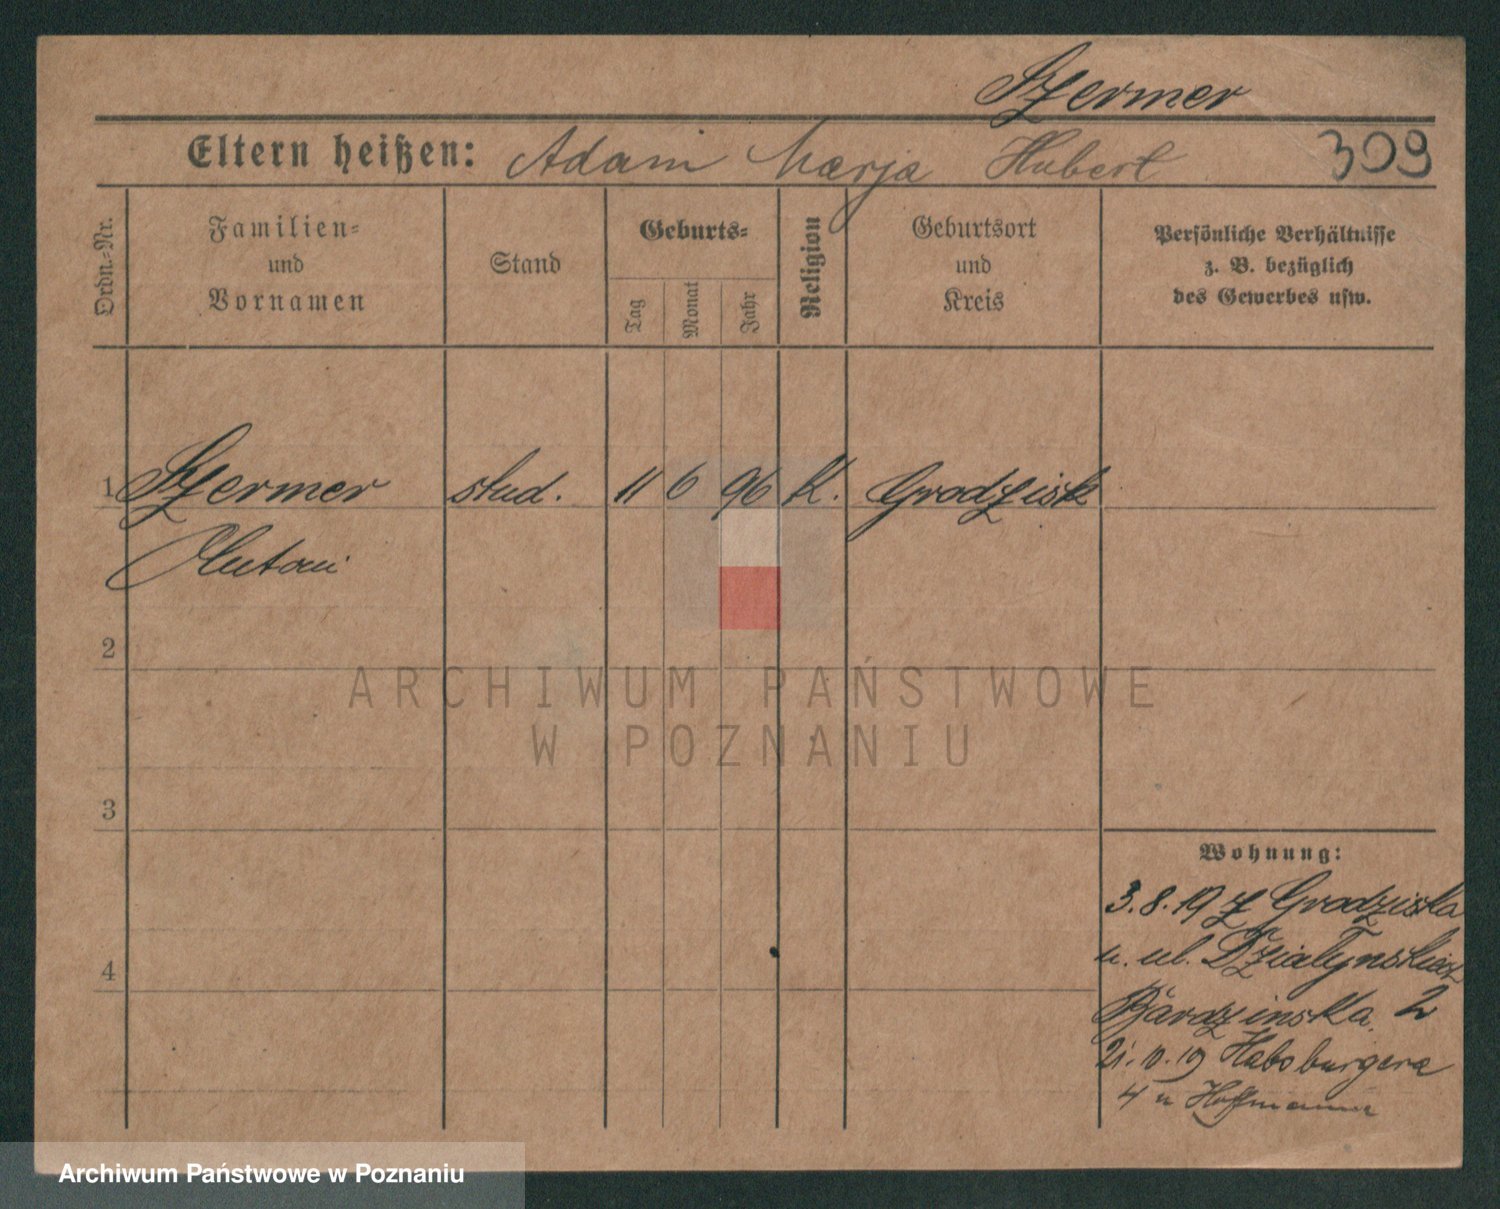 Szermer
Eltern heißen: Adam Marja Hubert 309
Ordn.-Nr.
Familien-
und
Vornamen
Stand
Geburts-
Tag
Monat
Jahr
Religion
Geburtsort
und
Kreis
Persönliche Verhältnisse
z. B. bezüglich
des Gewerbes usw.
1 Szermer stud. 11 6 96 K. Grodzisk
Antoni
2
ARCHIWUM PAŃSTWOWE
W POZNANIU
3
Wohnung:
3.8.19 z Grodziska
u. ul.
4
2
21.10.19 Habsburgera
4 u Hoffmanna
Archiwum Państwowe w Poznaniu